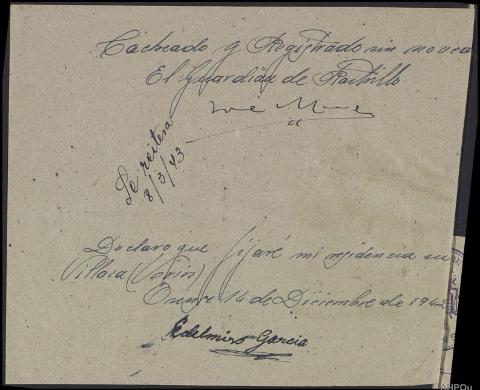 Cacheado y Registrado sin noved
El Guardián de Rastrillo
José
Se reitera
8/3/43
Declaro que fijaré mi residencia en
Villaza (Verín)
Orense 14 de Diciembre de 1942
Edelmiro Garcia
AHPOu